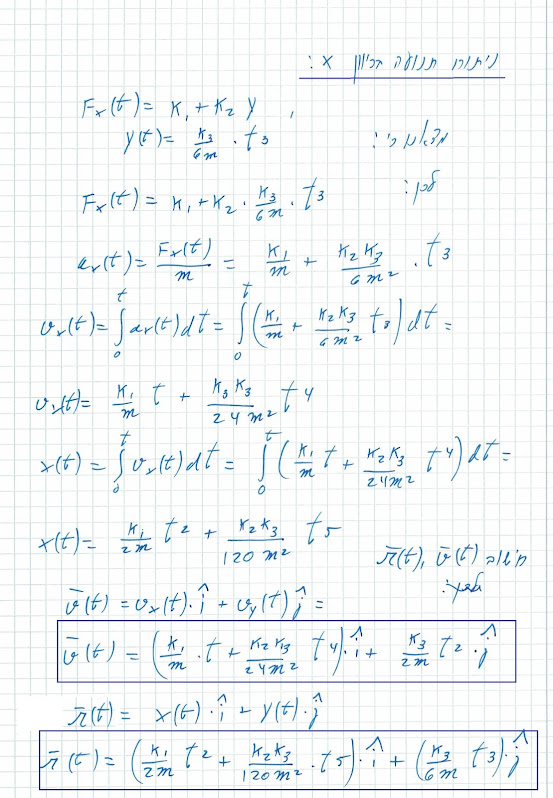 ניתוח תנועה בכיוון x:
F_x(t) = k_1 + k_2 y ,
מצאנו כי: y(t) = k_3/6m · t^3
לכן: F_x(t) = k_1 + k_2 · k_3/6m · t^3
a_x(t) = F_x(t)/m = k_1/m + k_2 k_3/6m^2 · t^3
v_x(t) = ∫_0^t a_x(t) dt = ∫_0^t (k_1/m + k_2 k_3/6m^2 t^3) dt =
v_x(t) = k_1/m t + k_3 k_3/24m^2 t^4
x(t) = ∫_0^t v_x(t) dt = ∫_0^t (k_1/m t + k_2 k_3/24m^2 t^4) dt =
x(t) = k_1/2m t^2 + k_2 k_3/120m^2 t^5
חישוב r̄(t), v̄(t)
v̄(t) = v_x(t)·î + v_y(t) ĵ =
v̄(t) = (k_1/m · t + k_2 k_3/24m^2 t^4)·î + k_3/2m t^2 · ĵ
r̄(t) = x(t)·î + y(t)·ĵ
r̄(t) = (k_1/2m t^2 + k_2 k_3/120m^2 · t^5)·î + (k_3/6m t^3)·ĵ